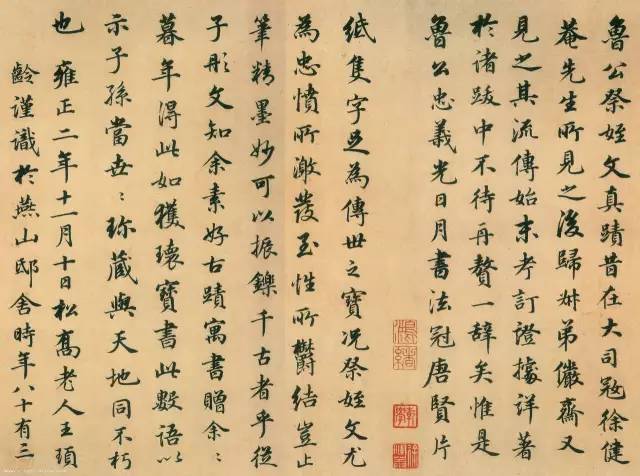 魯公祭姪文真蹟昔在大司寇徐健
菴先生所見之後歸姊弟儼齋又
見之其流傳始末考訂證據詳著
於諸跋中不待再贅一辭矣惟是
魯公忠義光日月書法冠唐賢片
紙隻字足為傳世之寶况祭姪文尤
為忠憤所激發至性所鬱結豈止
筆精墨妙可以振鑠千古者乎從
子彤文知余素好古蹟寓書贈余ミ
暮年得此如獲瓌寶書此數語以
示子孫當世ミ珍藏與天地同不朽
也 雍正二年十一月十日松喬老人王頊
齡謹識於燕山邸舍時年八十有三